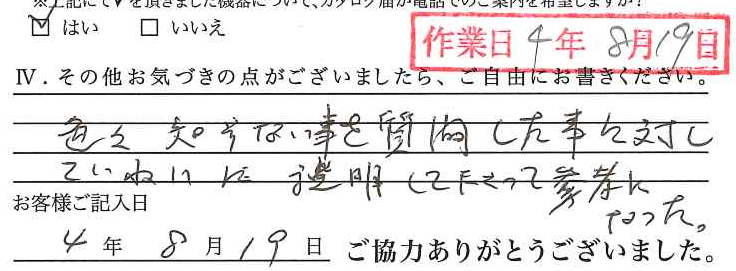 ※上記にて✓を頂きました機器について、カタログ届か電話でのご案内を希望しますか?
☑ はい ☐ いいえ
作業日 4年 8月19日
Ⅳ.その他お気づきの点がございましたら、ご自由にお書きください。
色々知らない事を質問した事に対し
ていねいに説明して下さって参考に
なった。
お客様ご記入日
4年 8月19日 ご協力ありがとうございました。